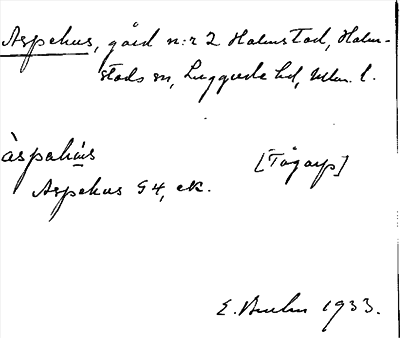 Aspehus, gård n:r 2 Halmstad, Halm-
stads sn, Luggude hd, Mlm. l.
àspahús [Tågarp]
Aspehus G4, ek.
E. 1933.